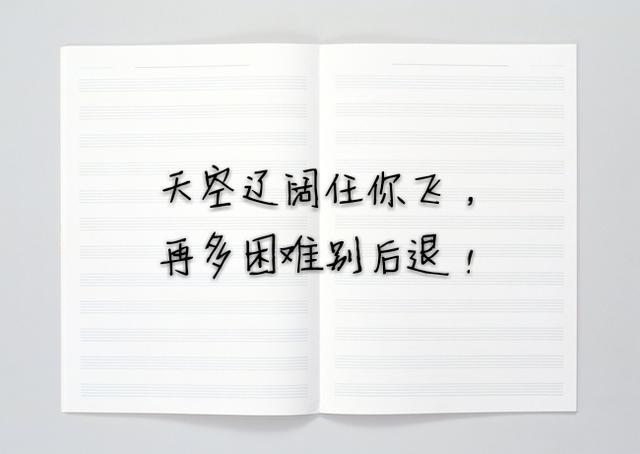 天空辽阔任你飞，
再多困难别后退！